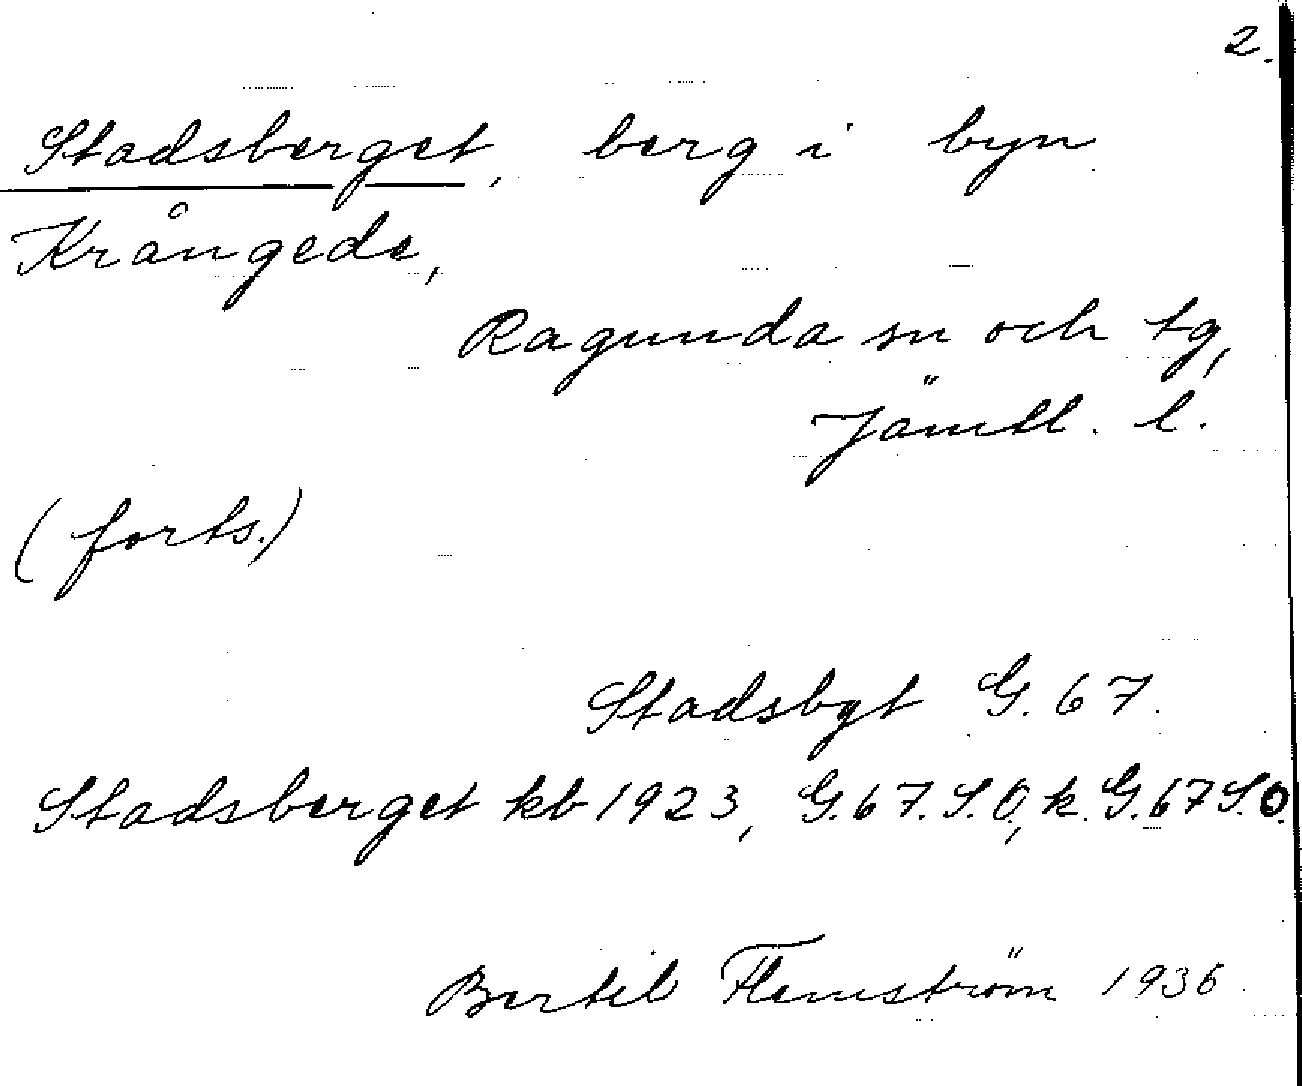 2.
Stadsberget, berg i byn
Krångede,
Ragunda sn och tg,
Jämtl. l.
(forts.)
Stadsbgt G. 67.
Stadsberget kb 1923, G. 67. S.O, k. G. 67 S.O.
Bertil Flemström 1936.